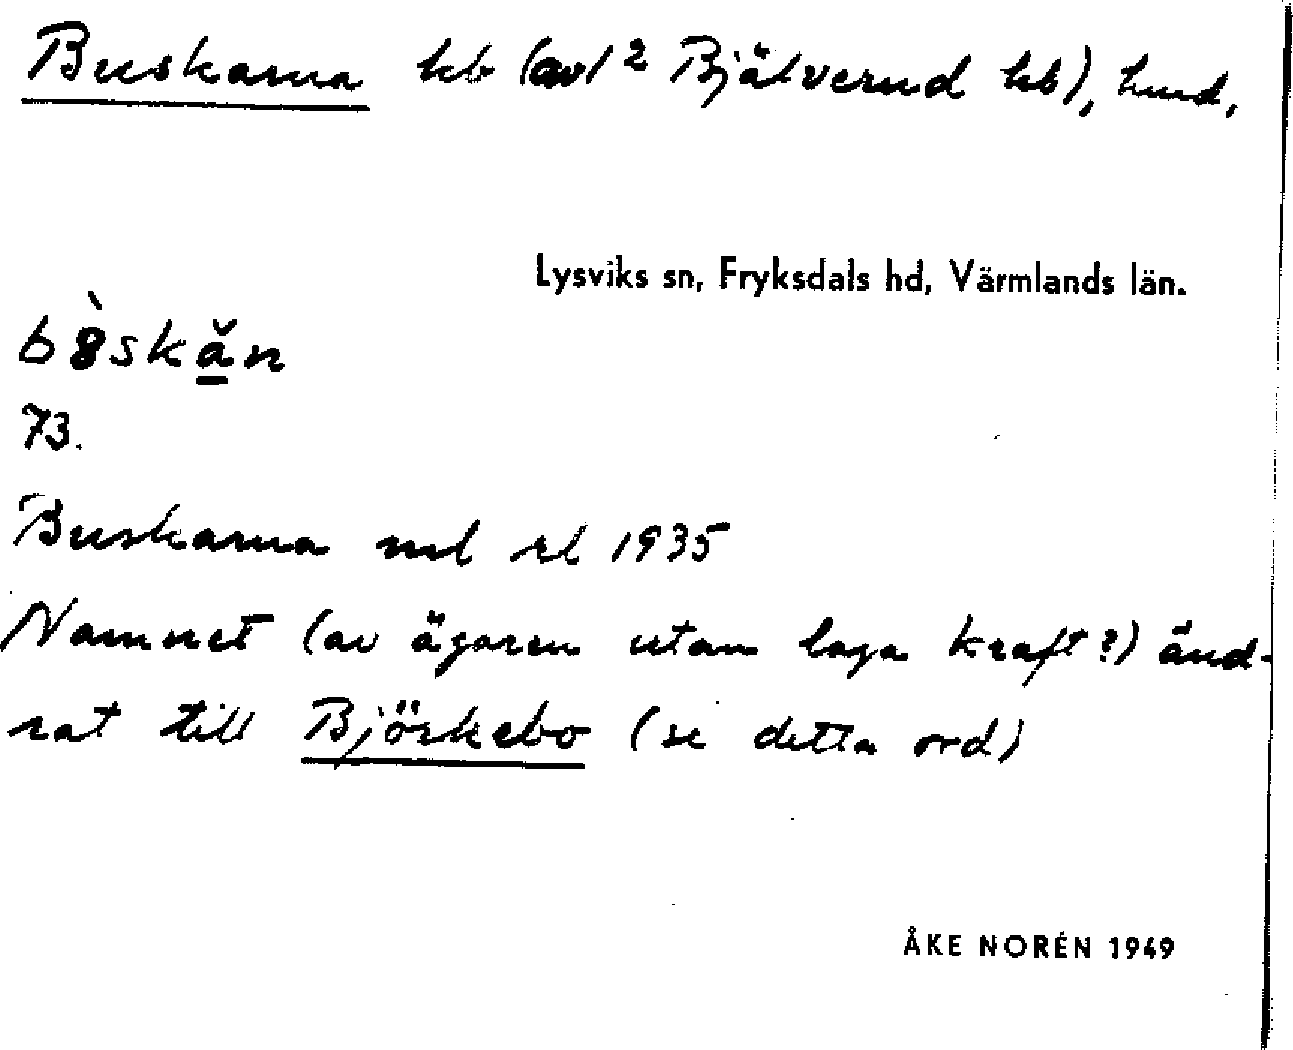 Buskarna hb (av 1² Bjälverud hb), hmd,
Lysviks sn, Fryksdals hd, Värmlands län.
bèskǎn
73.
Buskarna rl 1935
Namnet (av ägaren utan laga kraft?) änd-
rat till Björkebo (se detta ord)
ÅKE NORÉN 1949